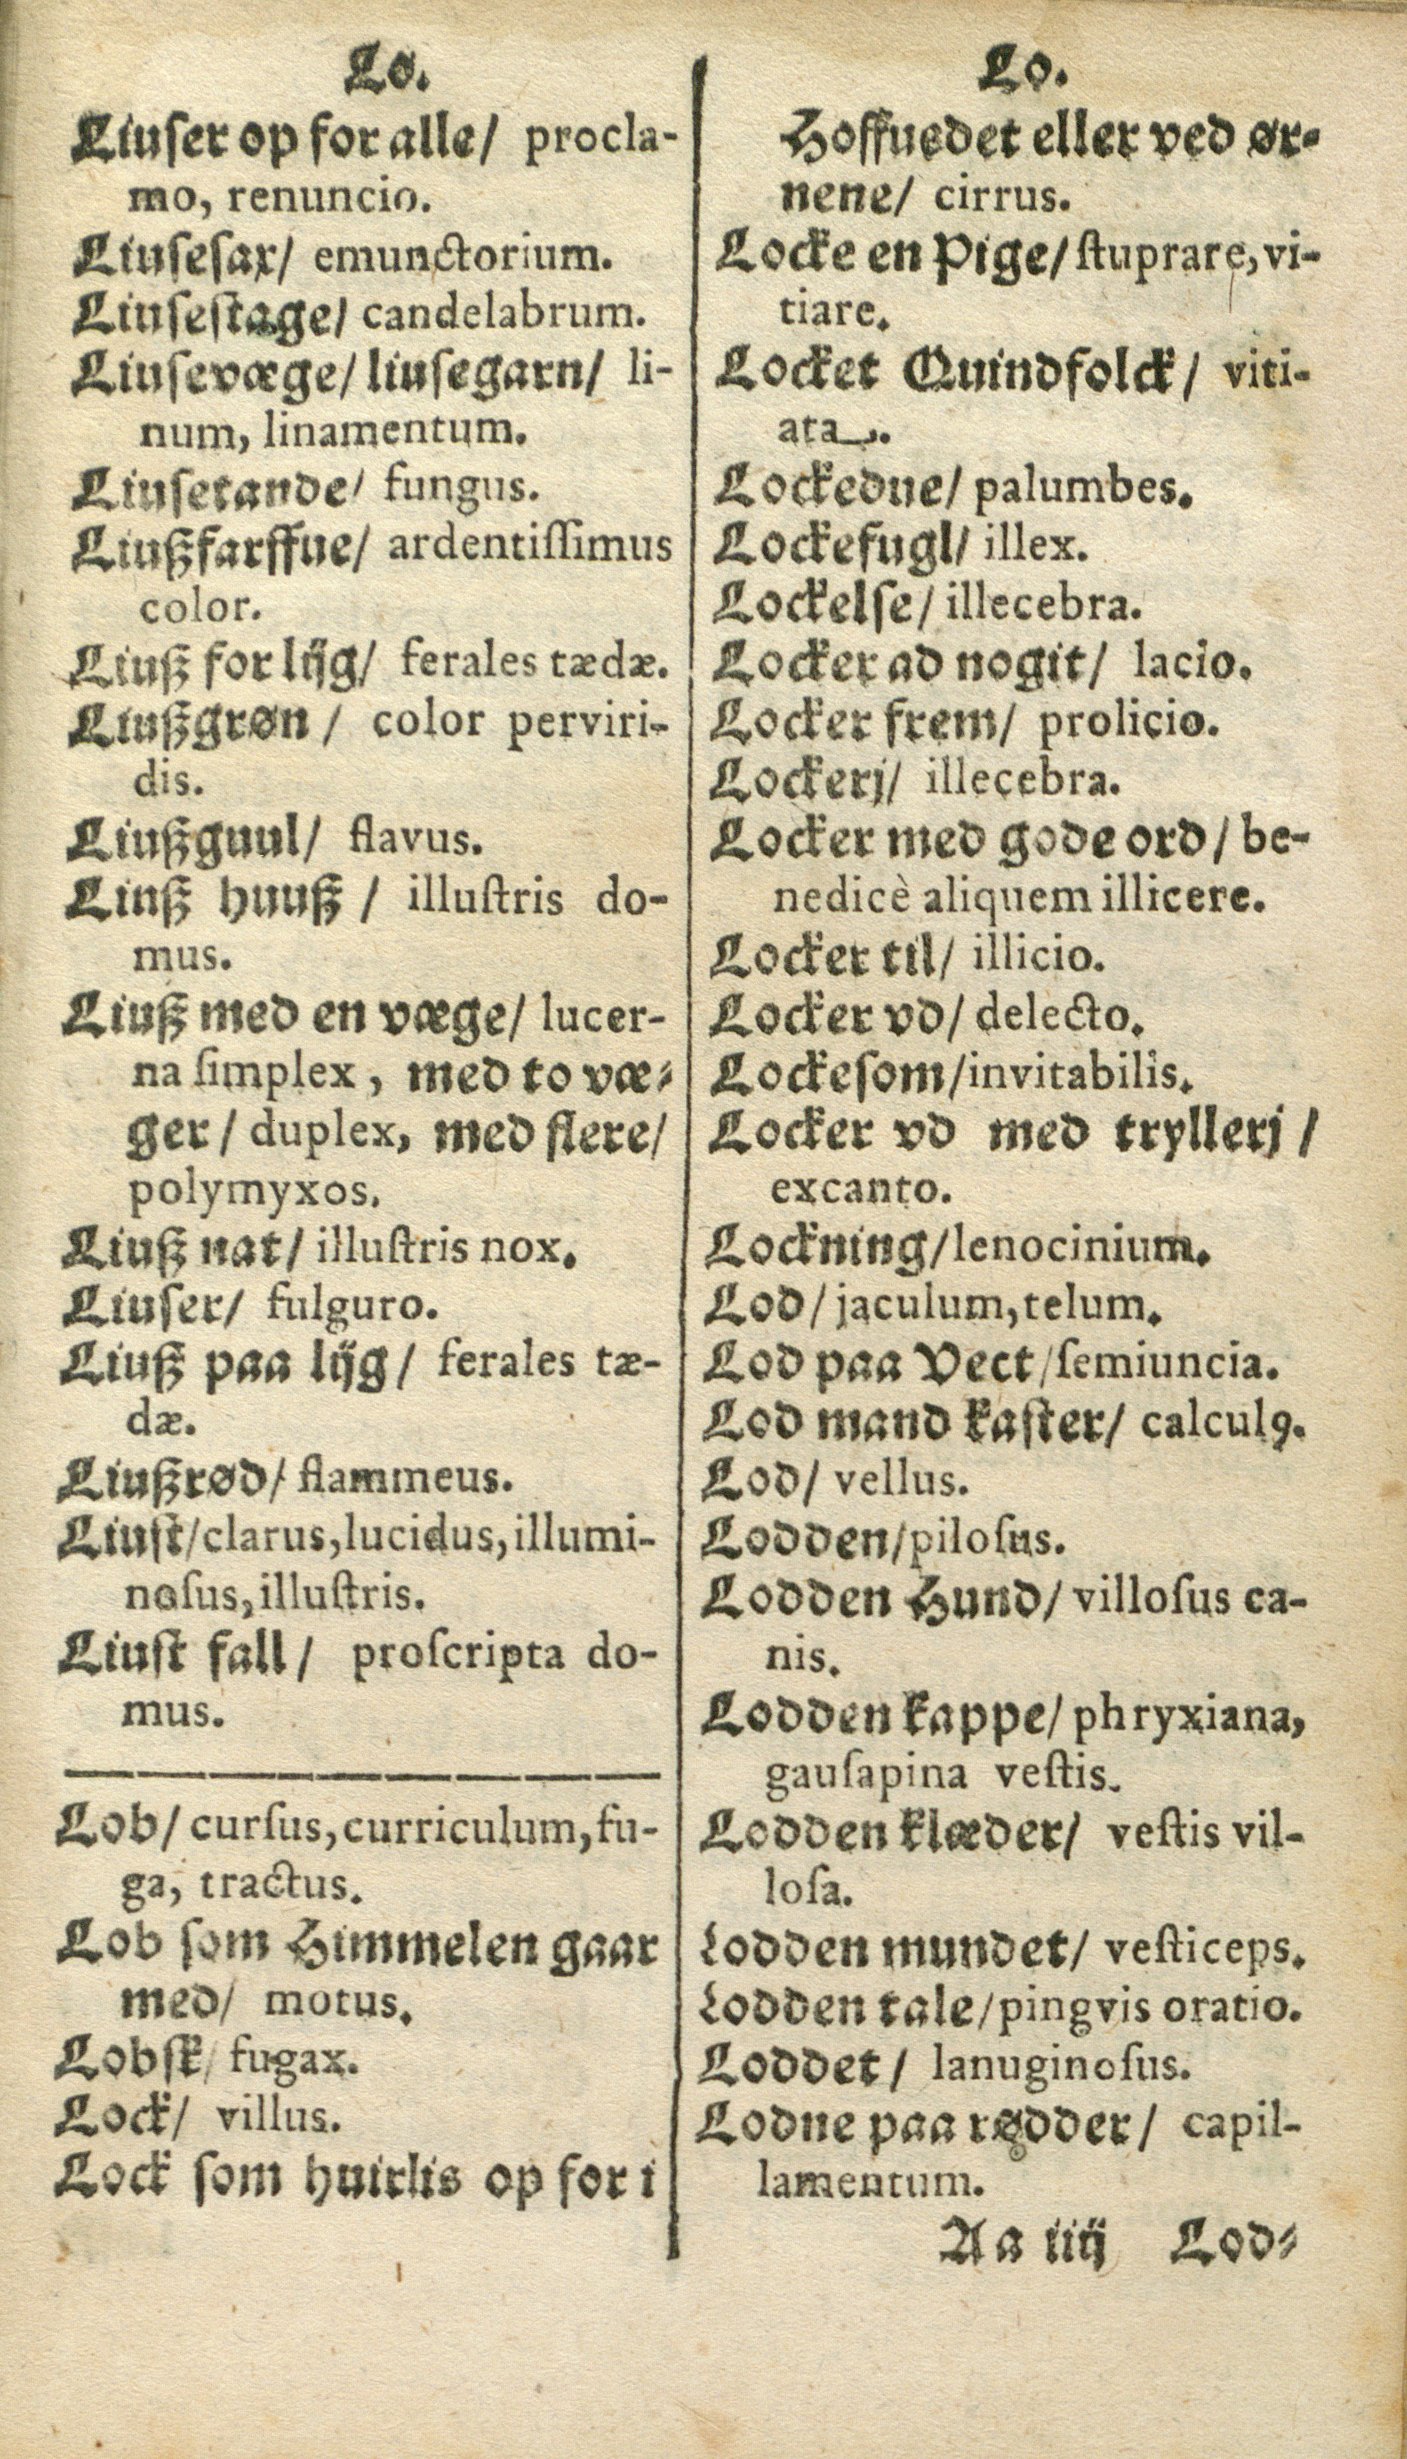 Lo.
Liuser op for alle/ procla-
mo, renuncio.
Liusesax/ emunctorium.
Liusestage/ candelabrum.
Liusevæge/ liusegarn/ li-
num, linamentum.
Liusetande/ fungus.
Liußfarffue/ ardentissimus
color.
Liuß for lijg/ ferales tædæ.
Liußgrøn / color perviri-
dis.
Liußguul/ flavus.
Liuß huuß / illustris do-
mus.
Liuß med en væge/ lucer-
na simplex, med to væ-
ger/ duplex, med flere/
polymyxos.
Liuß nat/ illustris nox.
Liuser/ fulguro.
Liuß paa lijg/ ferales tæ-
dæ.
Liußrød/ flammeus.
Liust/clarus,lucidus,illumi-
nosus,illustris.
Liust fall/ proscripta do-
mus.
Lob/ cursus,curriculum,fu-
ga, tractus.
Lob som Himmelen gaar
med/ motus.
Lobsk/ fugax.
Lock/ villus.
Lock som huirlis op for i
Lo.
Hoffuedet eller ved ør-
nene/ cirrus.
Locke en Pige/ stuprare, vi-
tiare.
Locket Quindfolck/ viti-
ata.
Lockedue/ palumbes.
Lockefugl/ illex.
Lockelse/ illecebra.
Locker ad nogit/ lacio.
Locker frem/ prolicio.
Lockerj/ illecebra.
Locker med gode ord/ be-
nedicè aliquem illicere.
Locker til/ illicio.
Locker vd/ delecto.
Lockesom/invitabilis.
Locker vd med tryllerj/
excanto.
Lockning/lenocinium.
Lod/ jaculum,telum.
Lod paa Vect/semiuncia.
Lod mand kaster/ calculꝰ.
Lod/ vellus.
Lodden/pilosus.
Lodden Hund/ villosus ca-
nis.
Lodden kappe/ phryxiana,
gausapina vestis.
Lodden klæder/ vestis vil-
losa.
Lodden mundet/ vesticeps.
Lodden tale/pingvis oratio.
Loddet/ lanuginosus.
Lodne paa rødder/ capil-
lamentum.
Aa iiij Lod-